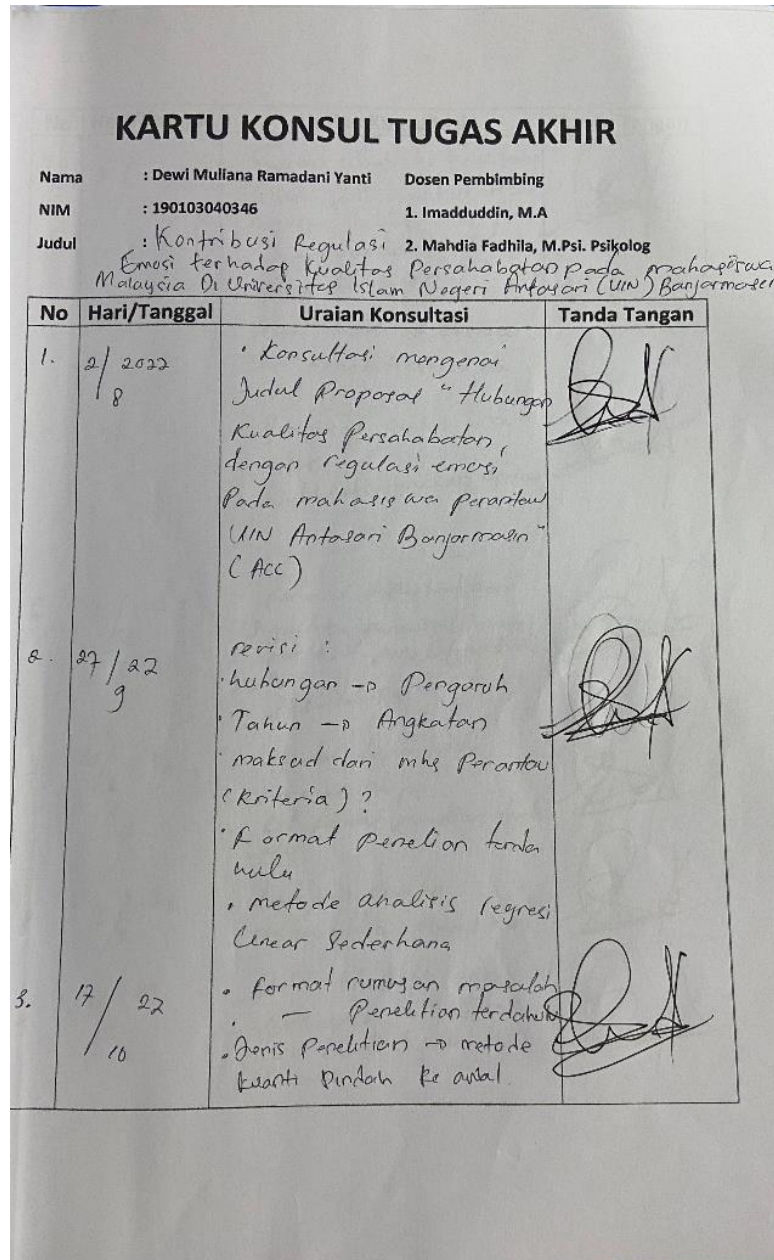 KARTU KONSUL TUGAS AKHIR
Nama : Dewi Muliana Ramadani Yanti Dosen Pembimbing
NIM : 190103040346 1. Imadduddin, M.A
Judul : Kontribusi Regulasi 2. Mahdia Fadhila, M.Psi. Psikolog
Emosi terhadap Kualitas Persahabatan pada mahasiswa
Malaysia Di Universitas Islam Negeri Antasari (UIN) Banjarmasin
No Hari/Tanggal Uraian Konsultasi Tanda Tangan
1. 2/8 2022 • Konsultasi mengenai
Judul Proposal " Hubungan
Kualitas Persahabatan,
dengan regulasi emosi
Pada mahasiswa perantau
UIN Antasari Banjarmasin "
( ACC )
2. 27/9 22 revisi :
• hubungan → Pengaruh
• Tahun → Angkatan
• maksud dari mhs Perantau
(kriteria) ?
• Format penelian terda
hulu
• metode analisis regresi
Linear Sederhana
3. 17/10 22 • format rumusan masalah
• — Penelitian terdahulu
• Jenis Penelitian → metode
kuanti Pindah ke awal